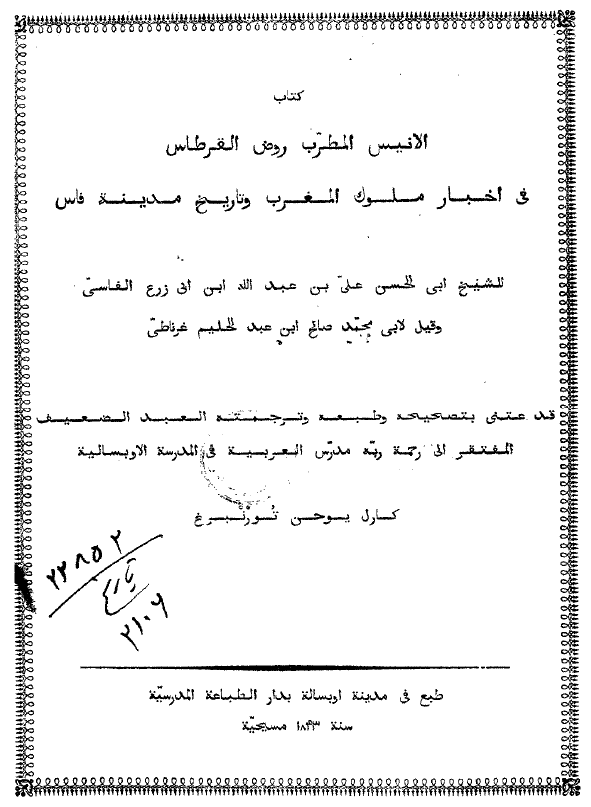 كتاب
الانيس المطرّب روض القرطاس
فى اخبار ملوك المغرب وتاريخ مدينة فاس
للشيخ ابى الحسن علىّ بن عبد الله ابن ابى زرع الفاسىّ
وقيل لابى محمّد صالح ابن عبد الحليم غرناطىّ
قد عتنى بتصحيحه وطبعه وترجمته العبد الضعيف
المفتقر الى رحمة ربّه مدرّس العربية فى المدرسة الاوبسالية
كارل يوحن تُورنْبرغ
٢٢٨٥٢
تاريخ
٢١٠٦
طبع فى مدينة اوبسالة بدار الطباعة المدرسيّة
سنة ١٨۴٣ مسيحيّة